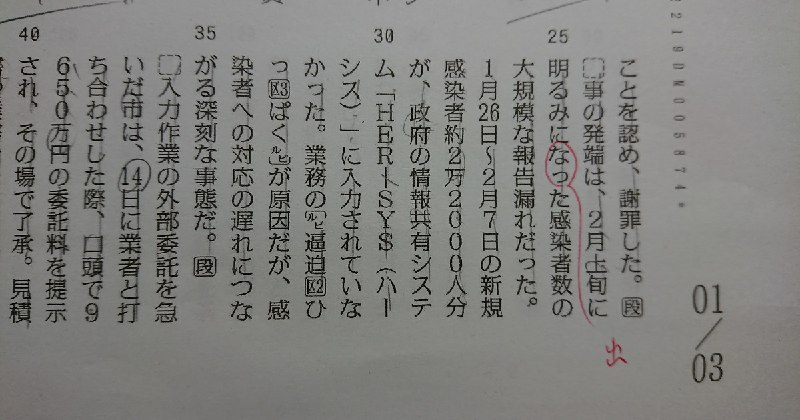 01/03
ことを認め、謝罪した。段
事の発端は、2月上旬に
25
明るみになった感染者数の
出
大規模な報告漏れだった。
1月26日〜2月7日の新規
感染者約2万2000人分
が、政府の情報共有システ
30
ム「HER-SYS(ハー
シス)」に入力されていな
かった。業務のルビ逼迫K2ひ
っK3ぱくルビが原因だが、感
染者への対応の遅れにつな
35
がる深刻な事態だ。段
入力作業の外部委託を急
いだ市は、14日に業者と打
ち合わせした際、口頭で9
650万円の委託料を提示
40
され、その場で了承。見積